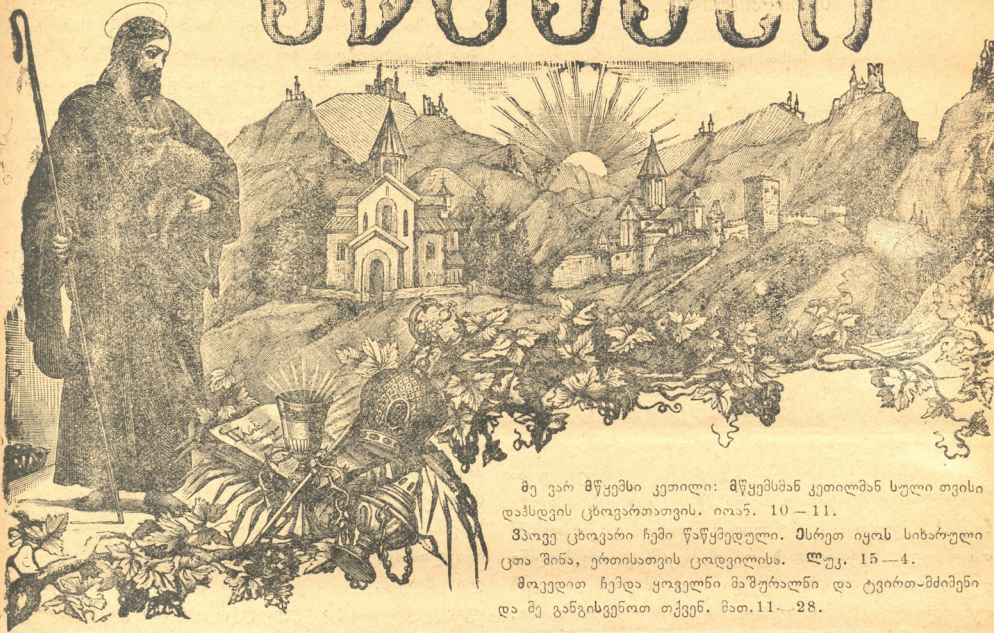 მე ვარ მწყემსი კეთილი: მწყემსმან კეთილმან სული თვისი
დაჰსდვის ცხოვართათვის. იოან. 10—11.
ვპოვე ცხოვარი ჩემი წაწყმედული. ესრეთ იყოს სიხარული
ცთა შინა, ერთისათვის ცოდვილისა. ლუკ. 15—4.
მოვედით ჩემდა ყოველნი მაშურალნი და ტვირთ-მძიმენი
და მე განგისვენოთ თქვენ. მათ. 11—28.